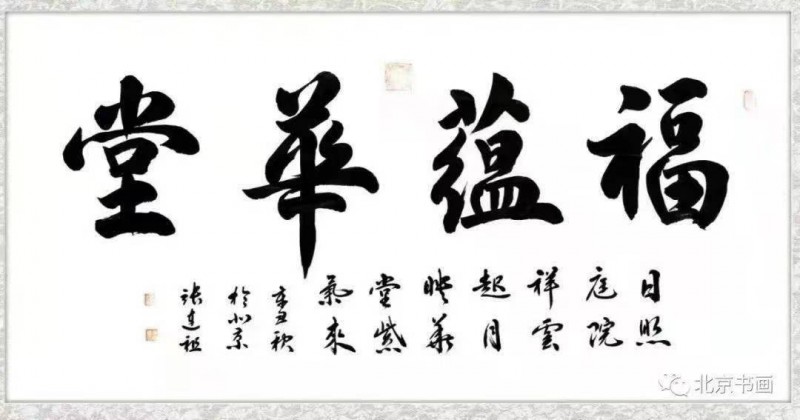 福蕴華堂
日照
庭院
祥雲
起月
映華
堂紫
氣來
辛丑秋
於北京
张连祖
北京书画